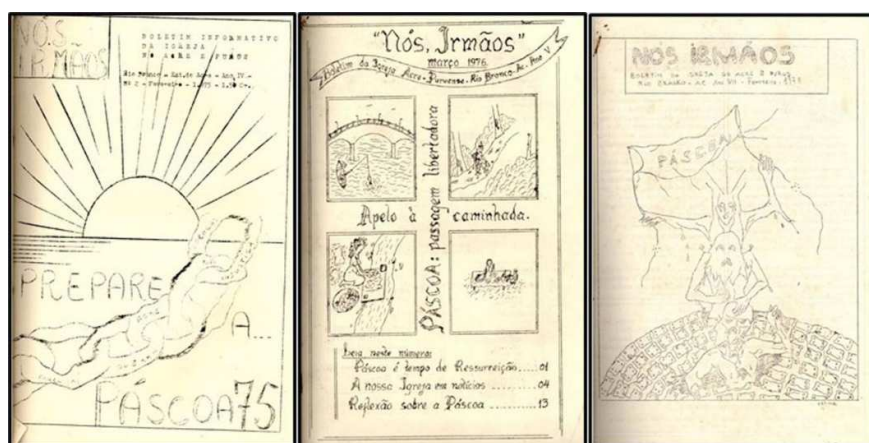 NÓS
IRMÃOS
BOLETIM INFORMATIVO
DA IGREJA
DO ACRE E PURUS
Rio Branco - Est. do Acre - Ano, IV -
Nº 2 - Fevereiro - 1.975 - 1,50 Cr.
PREPARE
A...
PÁSCOA 75
"Nós, Irmãos"
março 1976.
Boletim da Igreja Acre-Puruense - Rio Branco - Ac. Ano V
PÁSCOA: passagem libertadora
Apelo à caminhada.
Leia neste número:
Páscoa é tempo de Ressurreição.....01
A nossa Igreja em notícias .........04
Reflexão sobre a Páscoa ...........13
NÓS IRMÃOS
BOLETIM DA IGREJA DO ACRE E PURUS
RIO BRANCO - AC
PÁSCOA